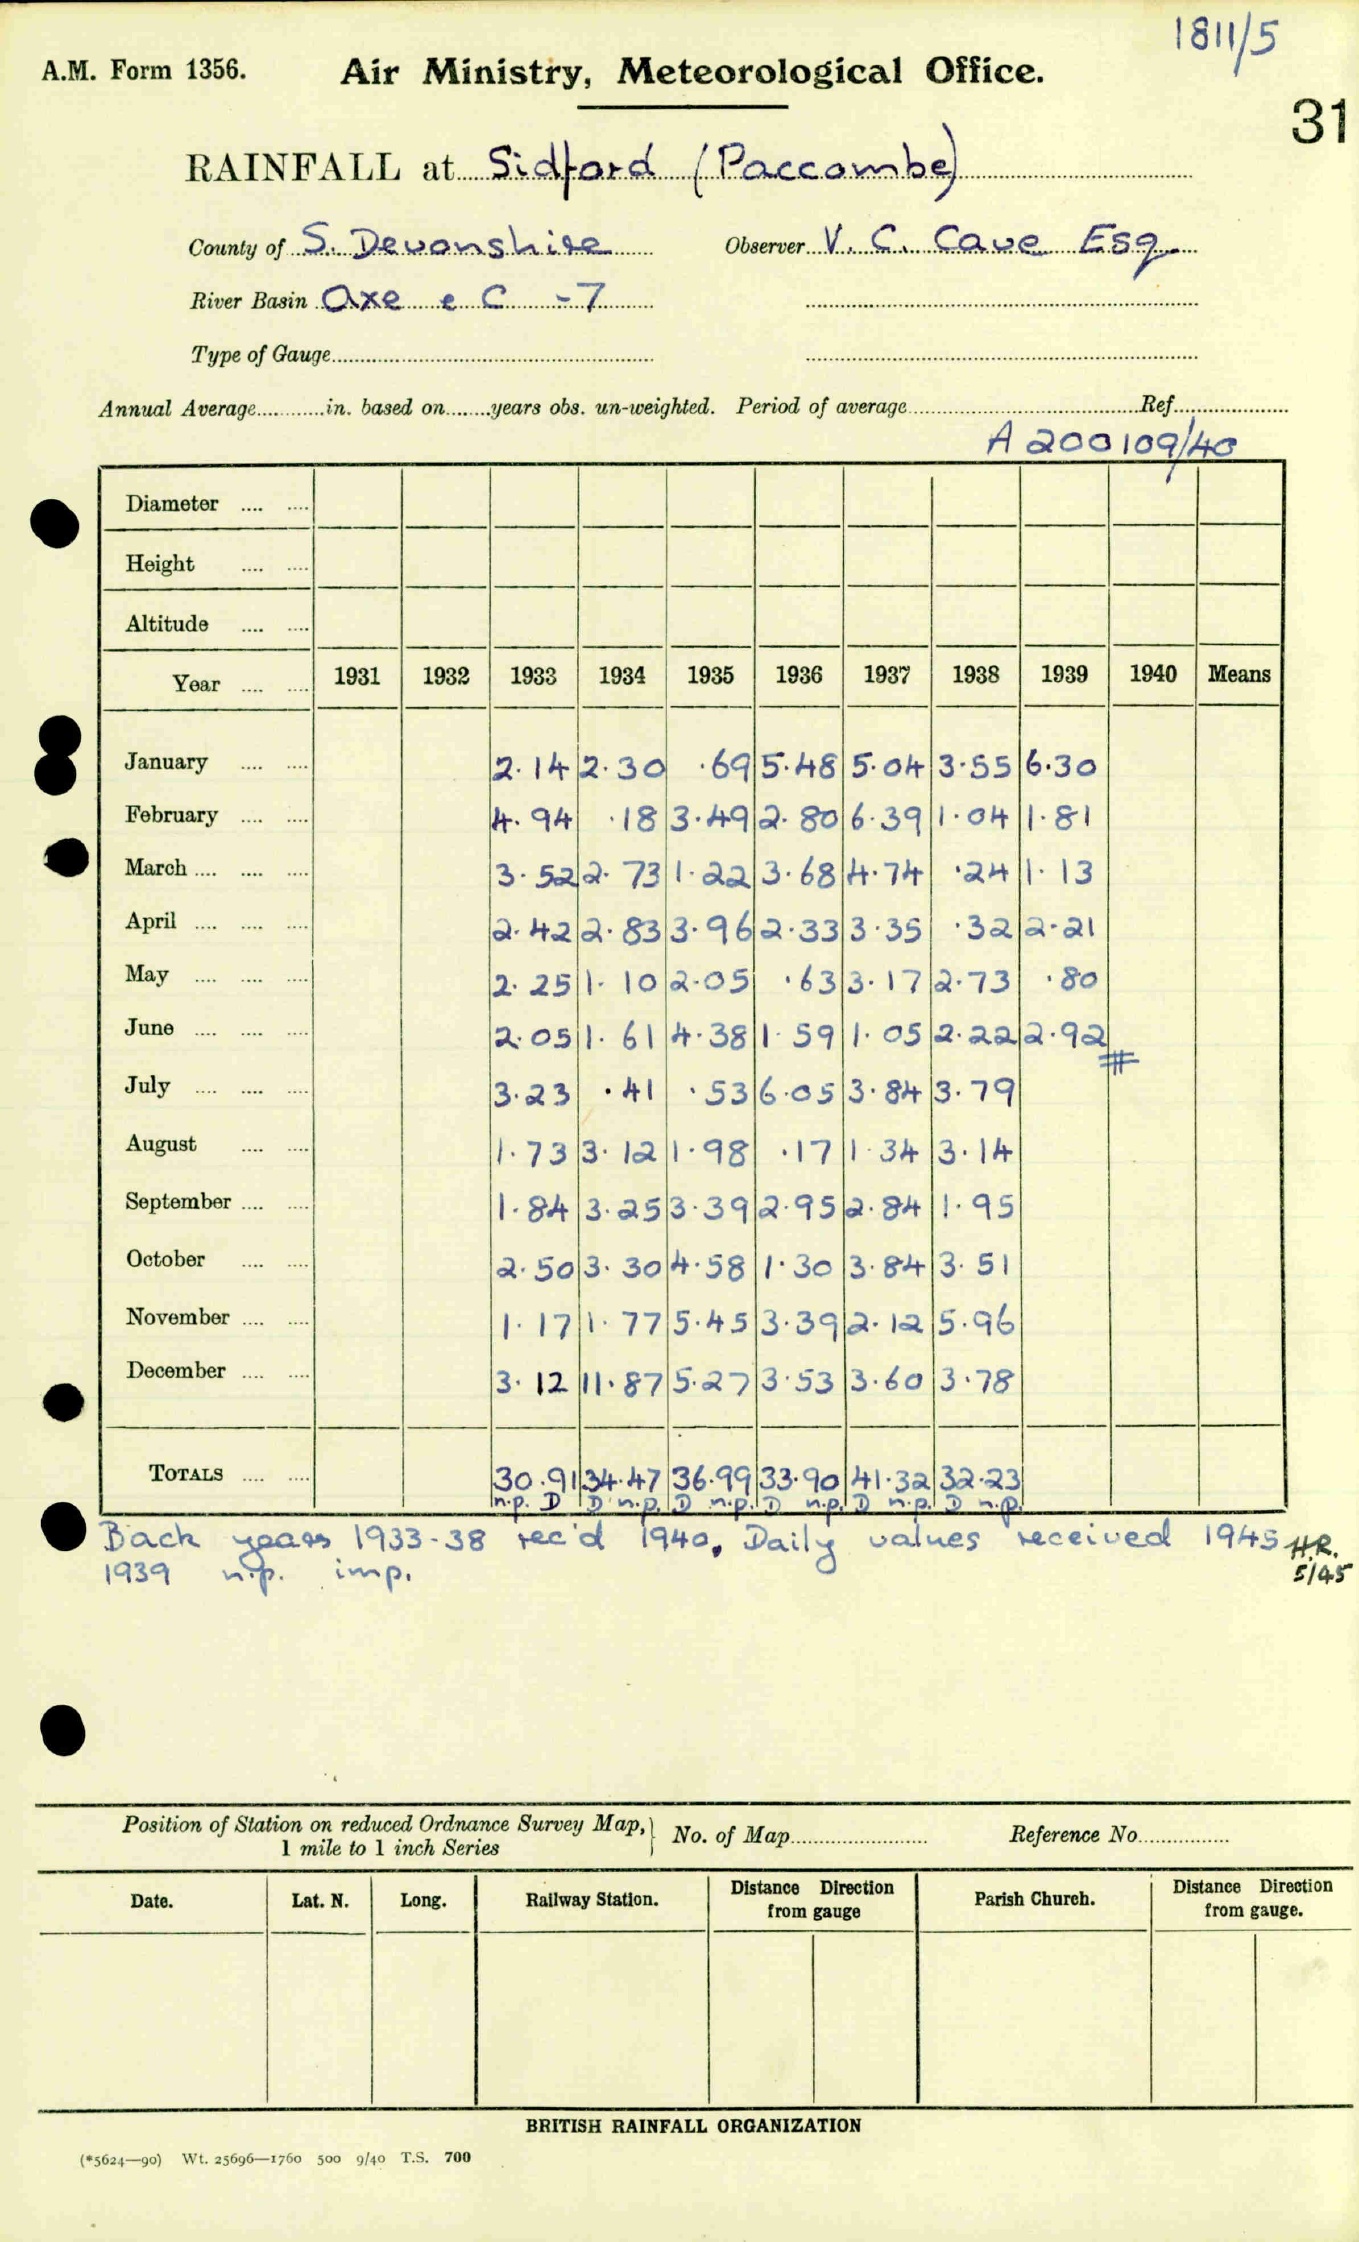 1811/5
A.M. Form 1356. Air Ministry, Meteorological Office.
31
RAINFALL at Sidford (Paccombe)
County of S. Devonshire Observer V. C. Cave Esq
River Basin Axe e C -7
Type of Gauge
Annual Average in. based on years obs. un-weighted. Period of average Ref.
A 200109/40
Diameter
Height
Altitude
Year 1931 1932 1933 1934 1935 1936 1937 1938 1939 1940 Means
January 2.14 2.30 .69 5.48 5.04 3.55 6.30
February 4.94 .18 3.49 2.80 6.39 1.04 1.81
March 3.52 2.73 1.22 3.68 4.74 .24 1.13
April 2.42 2.83 3.96 2.33 3.35 .32 2.21
May 2.25 1.10 2.05 .63 3.17 2.73 .80
June 2.05 1.61 4.38 1.59 1.05 2.22 2.92
July 3.23 .41 .53 6.05 3.84 3.79
August 1.73 3.12 1.98 .17 1.34 3.14
September 1.84 3.25 3.39 2.95 2.84 1.95
October 2.50 3.30 4.58 1.30 3.84 3.51
November 1.17 1.77 5.45 3.39 2.12 5.96
December 3.12 11.87 5.27 3.53 3.60 3.78
TOTALS 30.91 34.47 36.99 33.90 41.32 32.23
n.p. D D n.p. D n.p. D n.p. D n.p. D n.p.
Back years 1933-38 rec'd 1940. Daily values received 1945 H.R.
1939 n.p. imp. 5/45
Position of Station on reduced Ordnance Survey Map, No. of Map Reference No.
1 mile to 1 inch Series
Date. Lat. N. Long. Railway Station. Distance Direction from gauge Parish Church. Distance Direction from gauge.
BRITISH RAINFALL ORGANIZATION
(*5624—90) Wt. 25696—1760 500 9/40 T.S. 700